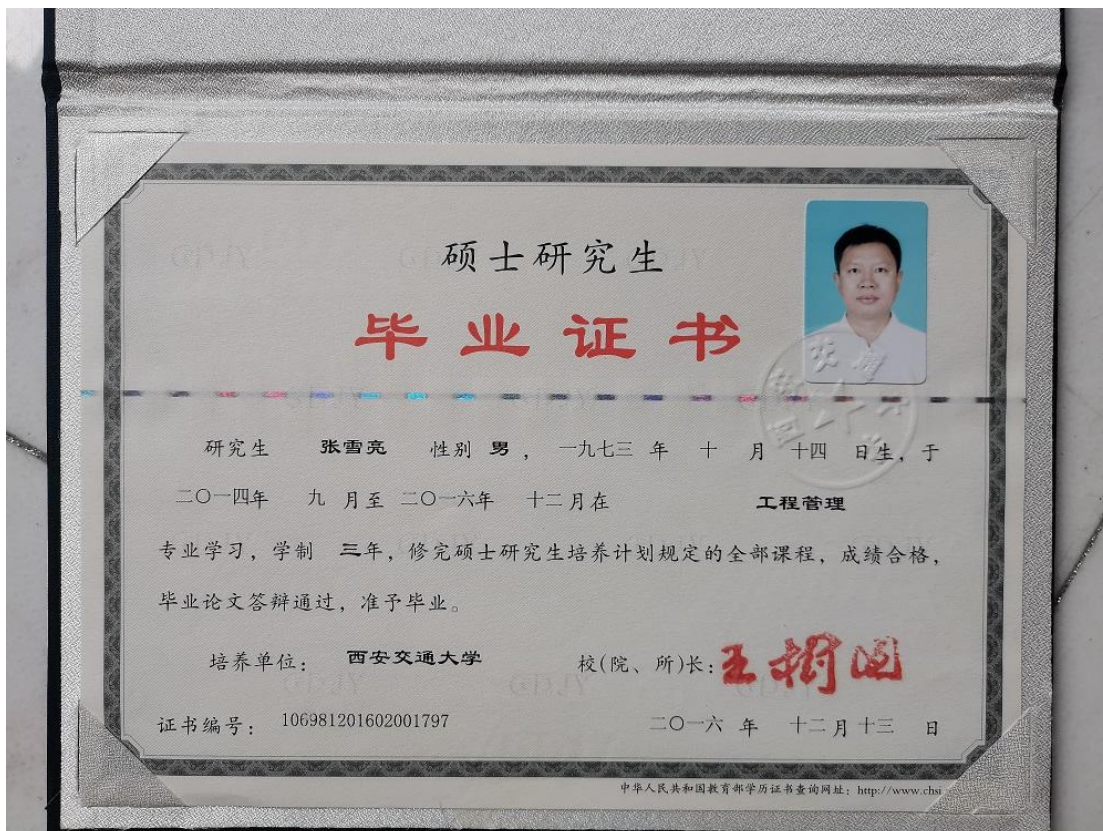 硕士研究生
毕业证书
研究生 张雪亮 性别 男 ， 一九七三 年 十 月 十四 日生，于
二〇一四年 九 月至 二〇一六年 十二月在 工程管理
专业学习，学制 三年，修完硕士研究生培养计划规定的全部课程，成绩合格，
毕业论文答辩通过，准予毕业。
培养单位： 西安交通大学 校(院、所)长：王树国
证书编号： 106981201602001797 二〇一六 年 十二月十三 日
中华人民共和国教育部学历证书查询网址：http://www.chsi